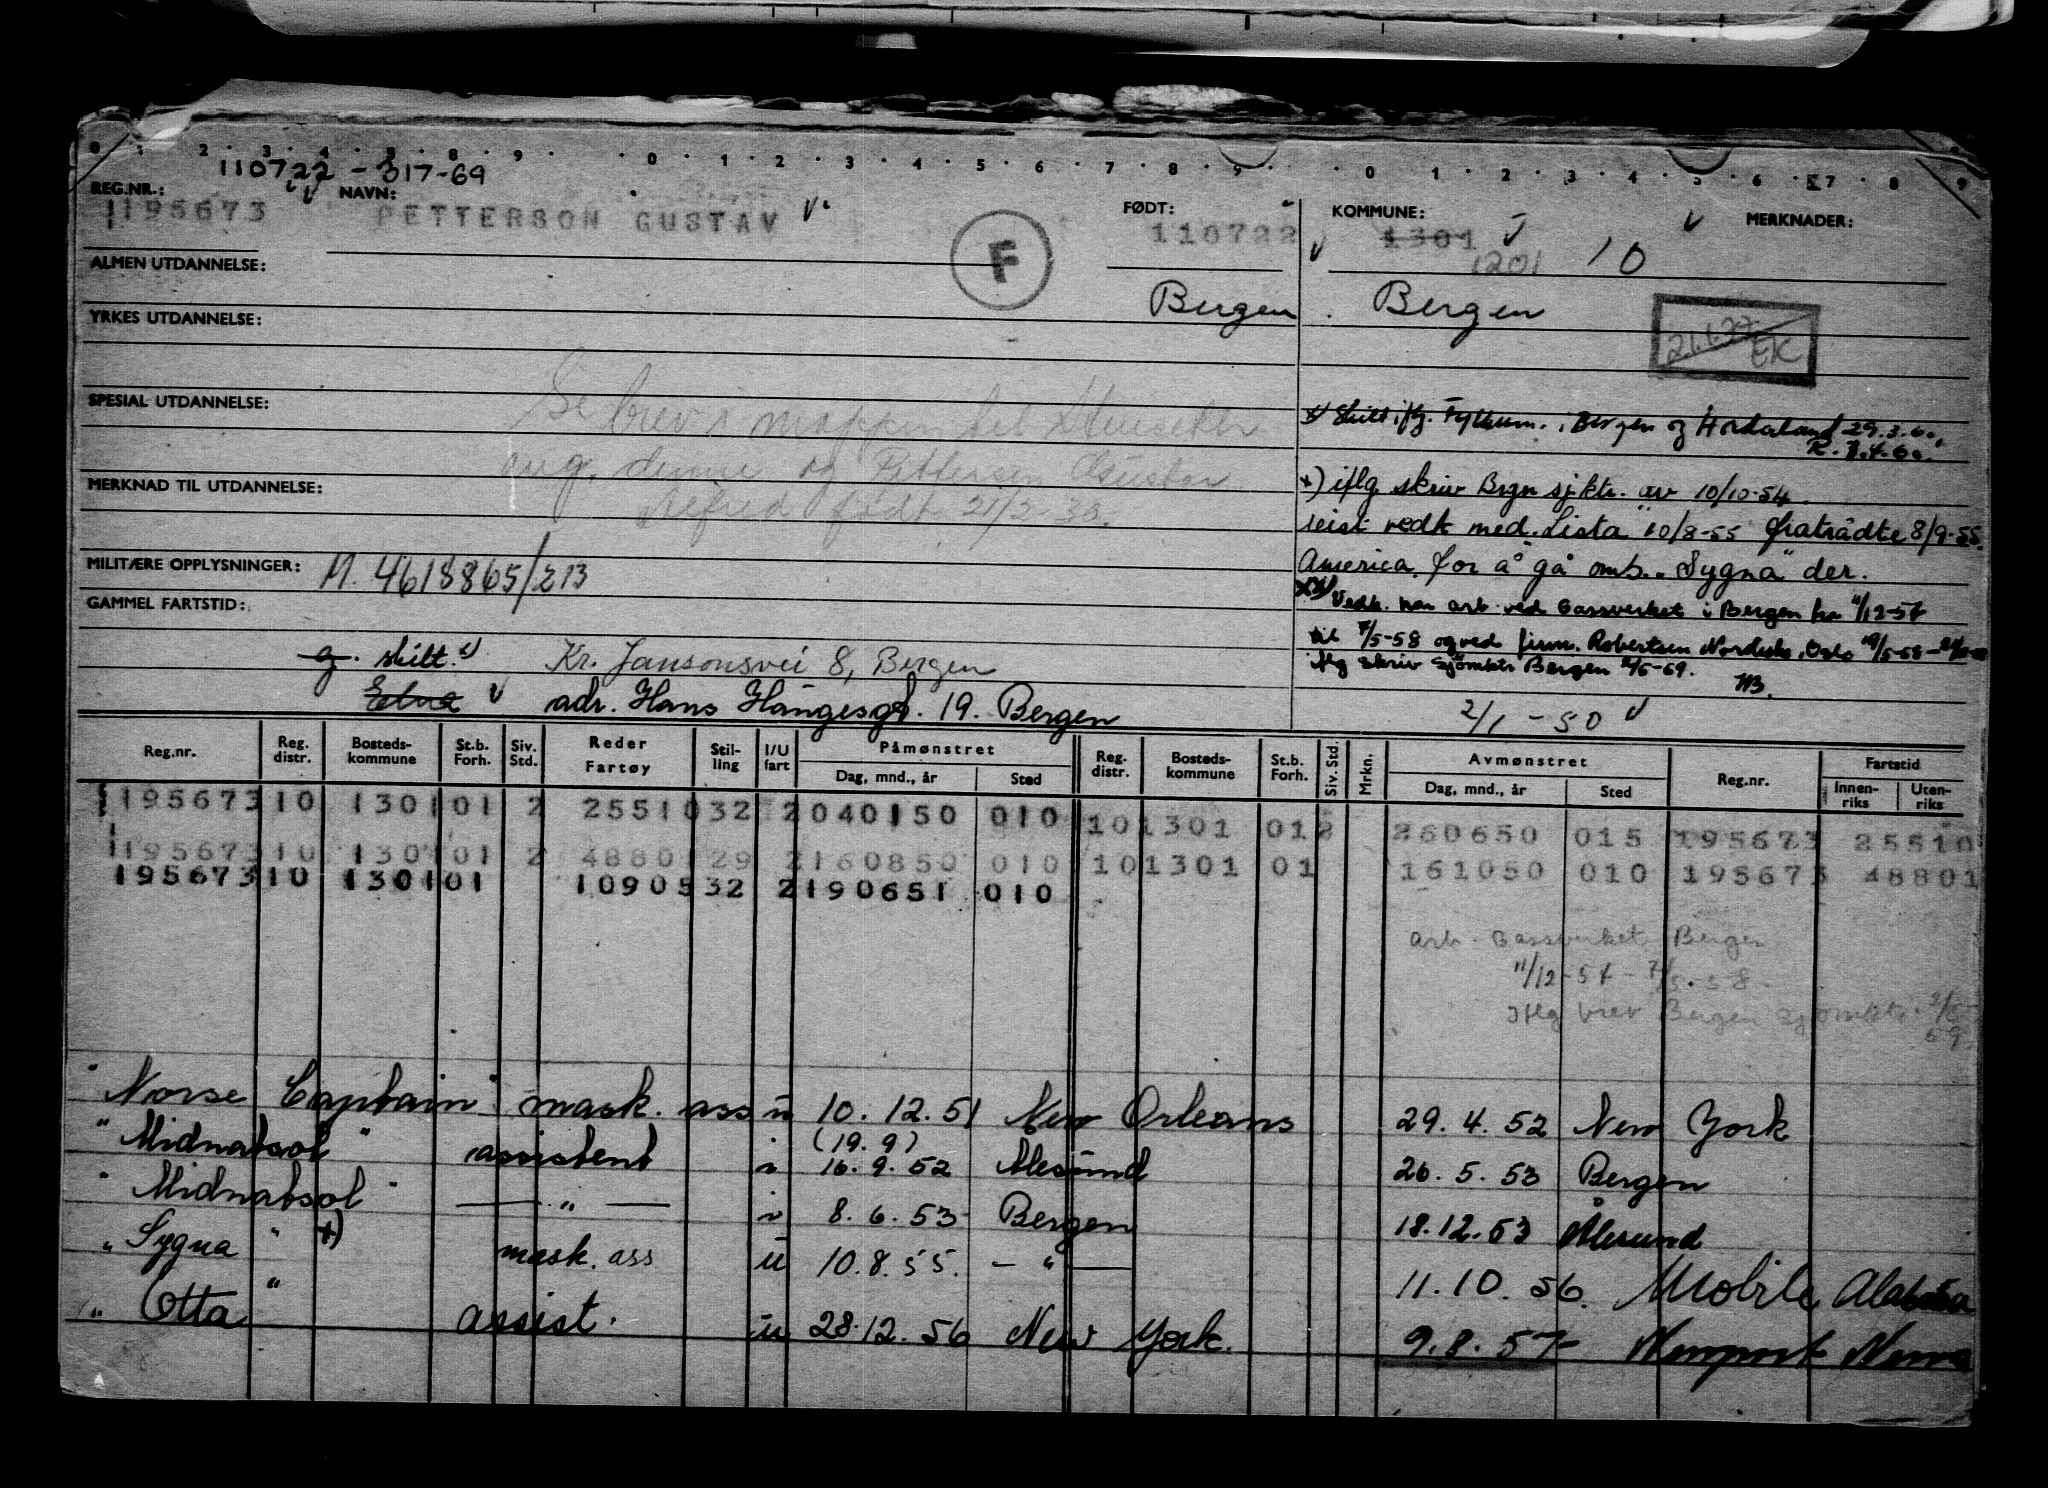 110722 - 317-69
REG.NR.: NAVN: FØDT: KOMMUNE: MERKNADER:
195673 PETTERSON GUSTAV F 110722 1301 1201 10
ALMEN UTDANNELSE:
Bergen Bergen
YRKES UTDANNELSE:
21.1.77 EK
Se brev i mappen til
SPESIAL UTDANNELSE:
x) Skilt iflg. Fylkesm. i Bergen og Hordaland 29.3.60,
R. 1.4.60.
ang. denne og Pettersen Gustav
Alfred født 21/2-30.
MERKNAD TIL UTDANNELSE:
+) iflg skriv Brgn sjktr. av 10/10-54.
reist vedk med "Lista" 10/8-55 fratrådte 8/9-55.
MILITÆRE OPPLYSNINGER: M. 4618865/213
America for å gå omb. "Sygna" der.
GAMMEL FARTSTID:
xx) Vedk. har arb. ved Gassverket i Bergen fra 11/12-57
til 7/5-58 og ved firm. Robertsen Nordisk, Oslo 19/5-58 -
iflg skriv Sjömkts Bergen 2/5-69.
g. skilt. x) Kr. Jansonsvei 8, Bergen
Edna adr. Hans Hauges gt. 19. Bergen
2/1 - 50
Reg.nr. Reg. distr. Bosteds-kommune St.b. Forh. Siv. Std. Reder Fartøy Stil-ling I/U fart Påmønstret Dag, mnd., år Sted Reg. distr. Bosteds-kommune St.b. Forh. Siv. Std. Mrkn. Avmønstret Dag, mnd., år Sted Reg.nr. Fartstid Innen-riks Uten-riks
195673 10 1301 01 2 25510 32 2 040150 010 10 1301 01 2 260650 015 195673 25510
195673 10 1301 01 2 48801 29 2 160850 010 10 1301 01 161050 010 195673 48801
195673 10 1301 01 10905 32 2 190651 010
arb. Gassverket Bergen
11/12-57 - 7/5-58
Iflg brev Bergen sjömkts. 2/5-
69.
"Norse Captain" mask. ass u 10.12.51 New Orleans 29.4.52 New York
(19.9)
"Midnatsol" assistent i 16.9.52 Ålesund 26.5.53 Bergen
"Midnatsol" — " — i 8.6.53 Bergen 18.12.53 Ålesund
"Sygna" +) mask. ass u 10.8.55. — " — 11.10.56. Mobile Alabama
"Otta" assist. u 28.12.56 New York. 9.8.57 Newport News